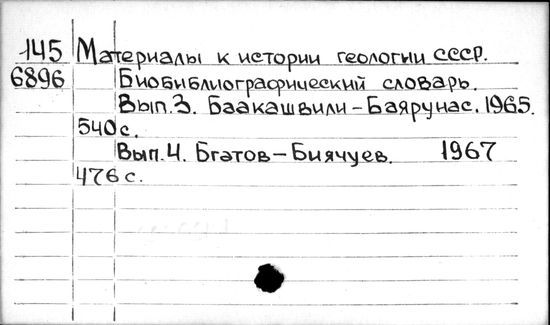 145 Материалы к истории геологии СССР.
6896 Биобиблиографический словарь.
Вып.3. Баакашвили-Баярунас. 1965.
540с.
Вып.4. Бгатов-Биячуев. 1967
476с.